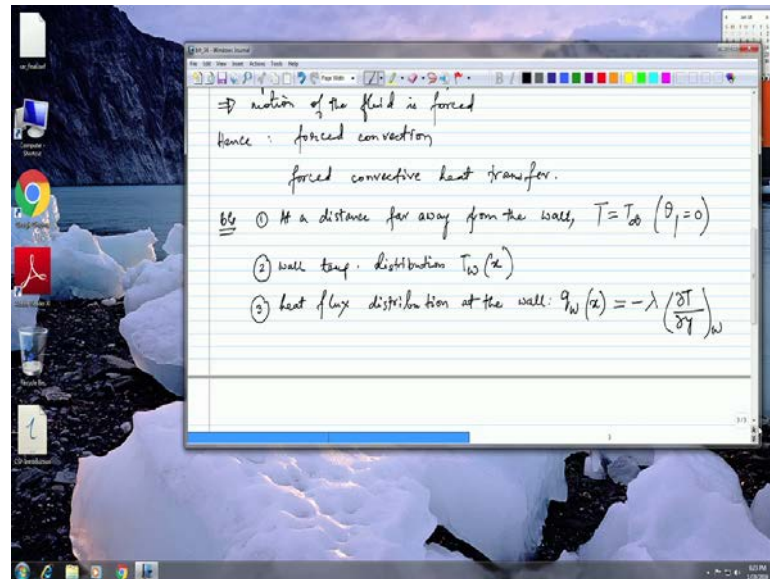 File Edit View Insert Actions Tools Help
Page Width
⇒ motion of the fluid is forced
Hence : forced convection
forced convective heat transfer.
BCs ① At a distance far away from the wall, T = T∞ (θ₁ = 0)
② wall temp. distribution T_w(x)
③ heat flux distribution at the wall: q_w(x) = -λ (∂T/∂y)_w
3/3
Computer - Shortcut
Google Chrome
Recycle Bin
CSP-Introduction
6:23 PM